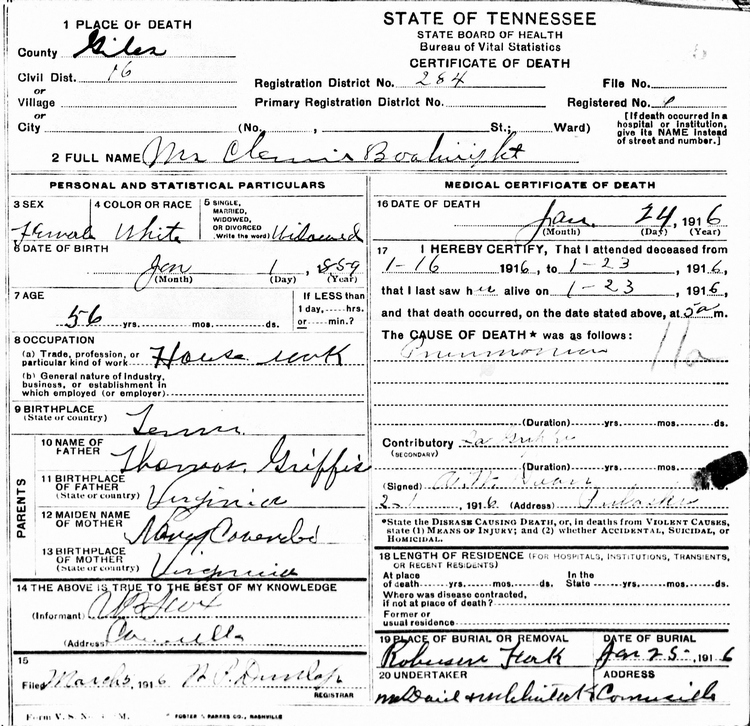 STATE OF TENNESSEE
STATE BOARD OF HEALTH
Bureau of Vital Statistics
CERTIFICATE OF DEATH
1 PLACE OF DEATH
County Giles
Civil Dist. 16
or
Village
or
City (No. , St.; Ward)
Registration District No. 284 File No.
Primary Registration District No. Registered No.
[If death occurred in a hospital or institution, give its NAME instead of street and number.]
2 FULL NAME Mrs Boatwright
PERSONAL AND STATISTICAL PARTICULARS
3 SEX Female
4 COLOR OR RACE White
5 SINGLE, MARRIED, WIDOWED, OR DIVORCED (Write the word) Widowed
6 DATE OF BIRTH
Jan 1, 1859
(Month) (Day) (Year)
7 AGE
56 yrs. mos. ds.
If LESS than 1 day, hrs. or min.?
8 OCCUPATION
(a) Trade, profession, or particular kind of work House work
(b) General nature of Industry, business, or establishment in which employed (or employer)
9 BIRTHPLACE
(State or country) Tenn.
PARENTS
10 NAME OF FATHER Thomas Griffis
11 BIRTHPLACE OF FATHER
(State or country) Virginia
12 MAIDEN NAME OF MOTHER Nancy
13 BIRTHPLACE OF MOTHER
(State or country) Virginia
14 THE ABOVE IS TRUE TO THE BEST OF MY KNOWLEDGE
(Informant)
(Address)
15
Filed March 5, 1916 Dunlap
REGISTRAR
Form V. S. No.
FOSTER & PARKES CO., NASHVILLE
MEDICAL CERTIFICATE OF DEATH
16 DATE OF DEATH
Jan. 24, 1916
(Month) (Day) (Year)
17 I HEREBY CERTIFY, That I attended deceased from
1-16 1916, to 1-23, 1916,
that I last saw her alive on 1-23, 1916,
and that death occurred, on the date stated above, at 5a m.
The CAUSE OF DEATH* was as follows:
Pneumonia 11a
(Duration) yrs. mos. ds.
Contributory La Grippe
(SECONDARY)
(Duration) yrs. mos. ds.
(Signed)
2-1, 1916 (Address) Pulaski
*State the DISEASE CAUSING DEATH, or, in deaths from VIOLENT CAUSES, state (1) MEANS OF INJURY; and (2) whether ACCIDENTAL, SUICIDAL, OR HOMICIDAL.
18 LENGTH OF RESIDENCE (FOR HOSPITALS, INSTITUTIONS, TRANSIENTS, OR RECENT RESIDENTS)
At place of death yrs. mos. ds. In the State yrs. mos. ds.
Where was disease contracted, if not at place of death?
Former or usual residence
19 PLACE OF BURIAL OR REMOVAL
Robinson Fork
DATE OF BURIAL
Jan 25, 1916
20 UNDERTAKER
ADDRESS